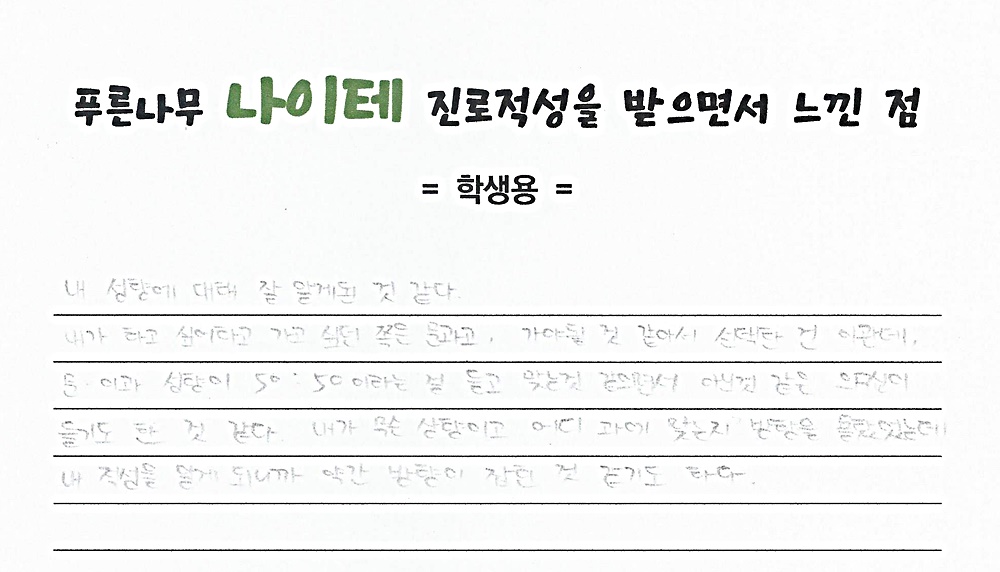 푸른나무 나이테 진로적성을 받으면서 느낀 점
= 학생용 =
내 성향에 대해 잘 알게된 것 같다.
내가 하고 싶어하고 가고 싶던 쪽은 문과고, 가야될 것 같아서 선택한 건 이관데,
문·이과 성향이 50:50이라는 걸 듣고 맞는건 같으면서 아닌것 같은 의구심이
들기도 한 것 같다. 내가 무슨 성향이고 어디 과에 맞는지 방향을 몰랐었는데
내 적성을 알게 되니까 약간 방향이 잡힌 것 같기도 하다.